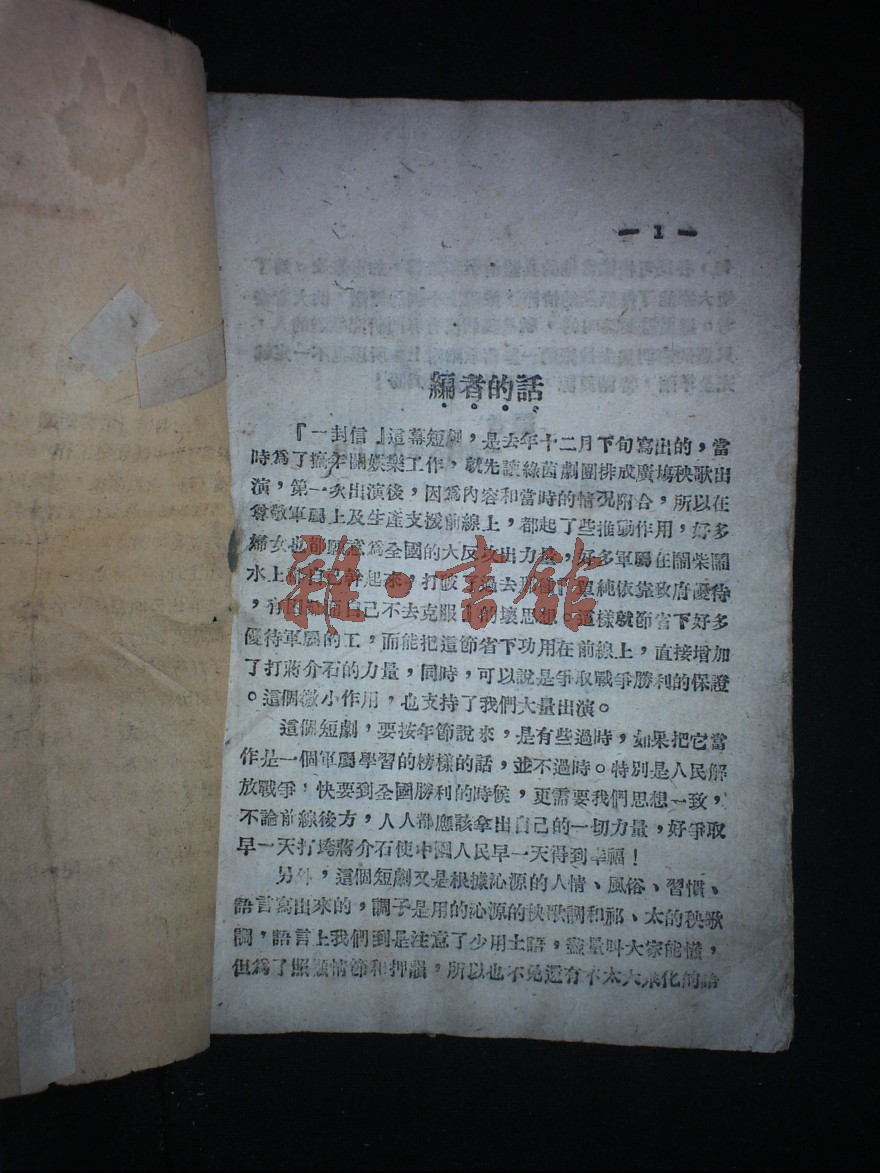 — 1 —
編者的話
『一封信』這幕短劇，是去年十二月下旬寫出的，當
時爲了搞年關娛樂工作，就先讓綠茵劇團排成廣場秧歌出
演，第一次出演後，因爲內容和當時的情况附合，所以在
尊敬軍屬上及生產支援前線上，都起了些推動作用，好多
婦女也都願意爲全國的大反攻出力量，好多軍屬在鬧柴鬧
水上的自己幹起來，打破了過去那種單純依靠政府優待
，有困難而自己不去克服的壞思想。這樣就節省下好多
優待軍屬的工，而能把這節省下功用在前線上，直接增加
了打蔣介石的力量，同時，可以說是爭取戰爭勝利的保證
。這個微小作用，也支持了我們大量出演。
這個短劇，要按年節說來，是有些過時，如果把它當
作是一個軍屬學習的榜樣的話，並不過時。特別是人民解
放戰爭，快要到全國勝利的時候，更需要我們思想一致，
不論前線後方，人人都應該拿出自己的一切力量，好爭取
早一天打垮蔣介石使中國人民早一天得到幸福！
另外，這個短劇又是根據沁源的人情、風俗、習慣、
語言寫出來的，調子是用的沁源的秧歌調和祁、太的秧歌
調，語言上我們到是注意了少用土語，盡量叫大家能懂，
但爲了照顧情節和押韻，所以也不免還有不太大衆化的語
雜·書館